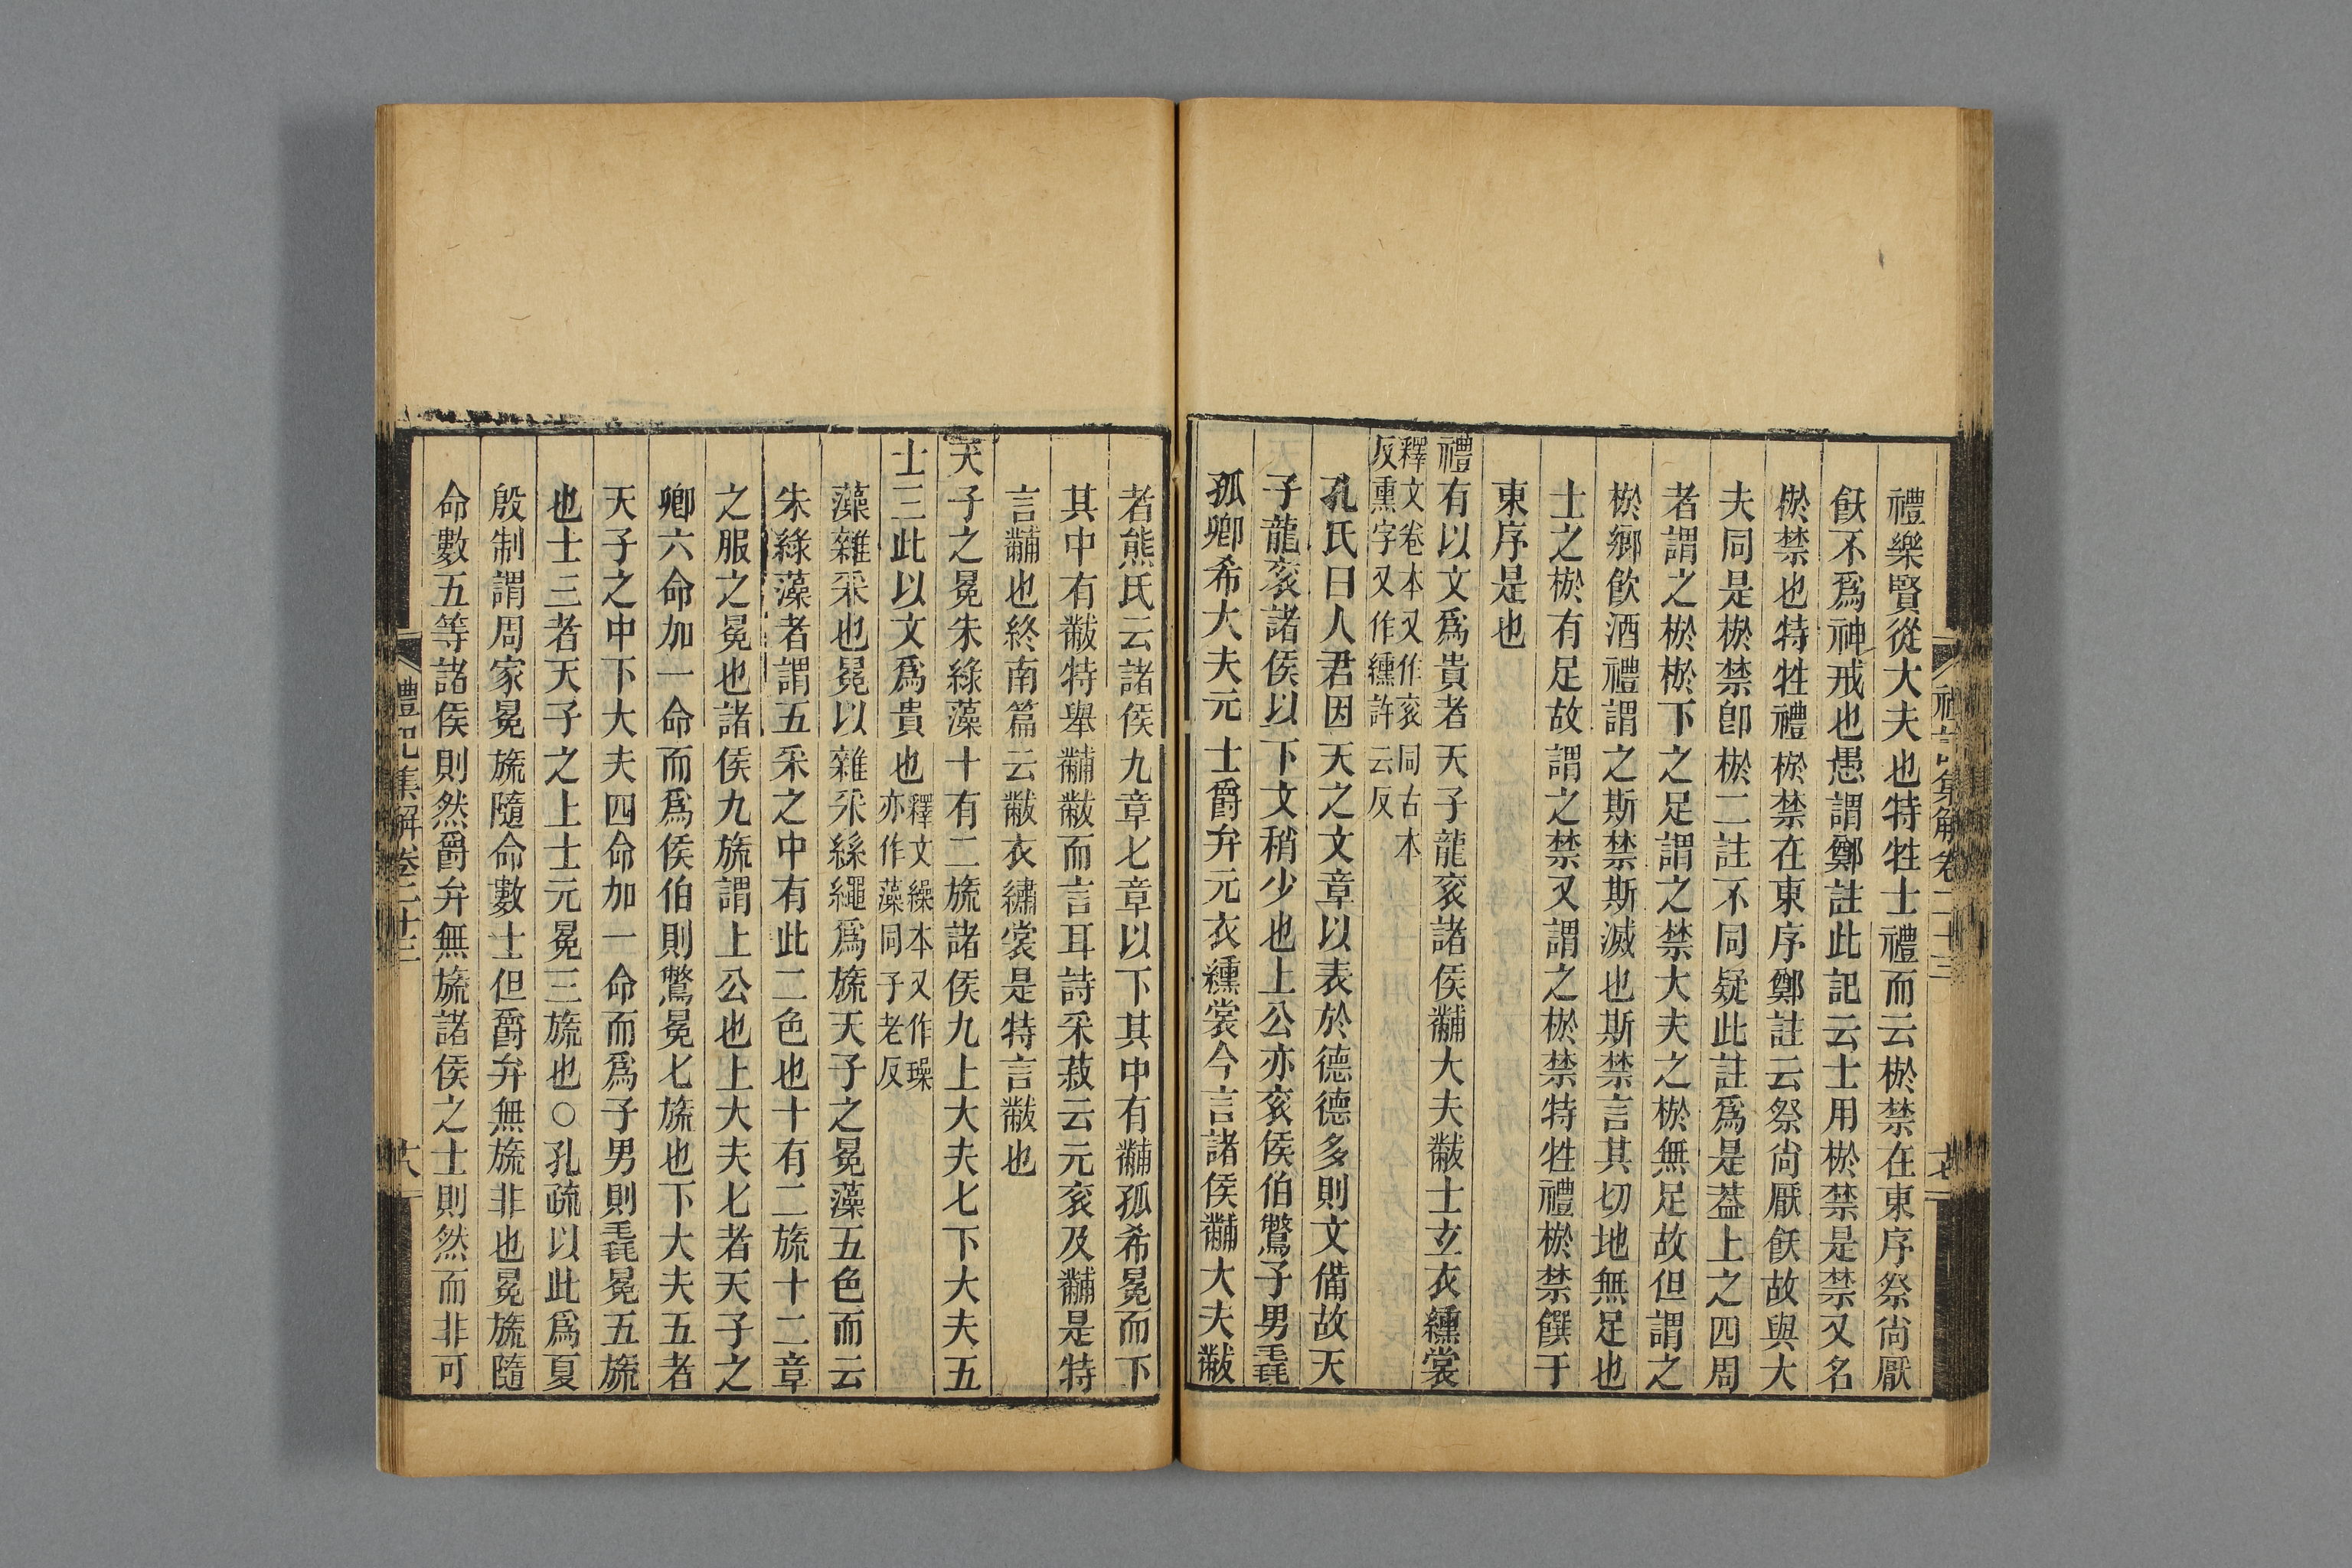 禮樂賢從大夫也特牲士禮而云棜禁在東序祭尙厭
飫不爲神戒也愚謂鄭註此記云士用棜禁是禁又名
棜禁也特牲禮棜禁在東序鄭註云祭尙厭飫故與大
夫同是棜禁卽棜二註不同疑此註爲是葢上之四周
者謂之棜棜下之足謂之禁大夫之棜無足故但謂之
棜鄉飮酒禮謂之斯禁斯滅也斯禁言其切地無足也
士之棜有足故謂之禁又謂之棜禁特牲禮棜禁饌于
東序是也
禮有以文爲貴者天子龍衮諸侯黼大夫黻士玄衣纁裳
釋文卷本又作衮同古本
反熏字又作纁許云反
孔氏曰人君因天之文章以表於德德多則文備故天
子龍衮諸侯以下文稍少也上公亦衮侯伯鷩子男毳
孤卿希大夫元士爵弁元衣纁裳今言諸侯黼大夫黻
禮記集解卷二十三
者熊氏云諸侯九章七章以下其中有黼孤希冕而下
其中有黻特舉黼黻而言耳詩采菽云元衮及黼是特
言黼也終南篇云黻衣繡裳是特言黻也
天子之冕朱綠藻十有二旒諸侯九上大夫七下大夫五
士三此以文爲貴也釋文繰本又作璪
亦作藻同子老反
藻雜采也冕以雜采絲繩爲旒天子之冕藻五色而云
朱綠藻者謂五采之中有此二色也十有二旒十二章
之服之冕也諸侯九旒謂上公也上大夫七者天子之
卿六命加一命而爲侯伯則鷩冕七旒也下大夫五者
天子之中下大夫四命加一命而爲子男則毳冕五旒
也士三者天子之上士元冕三旒也○孔疏以此爲夏
殷制謂周家冕旒隨命數士但爵弁無旒非也冕旒隨
命數五等諸侯則然爵弁無旒諸侯之士則然而非可
禮記集解卷二十三